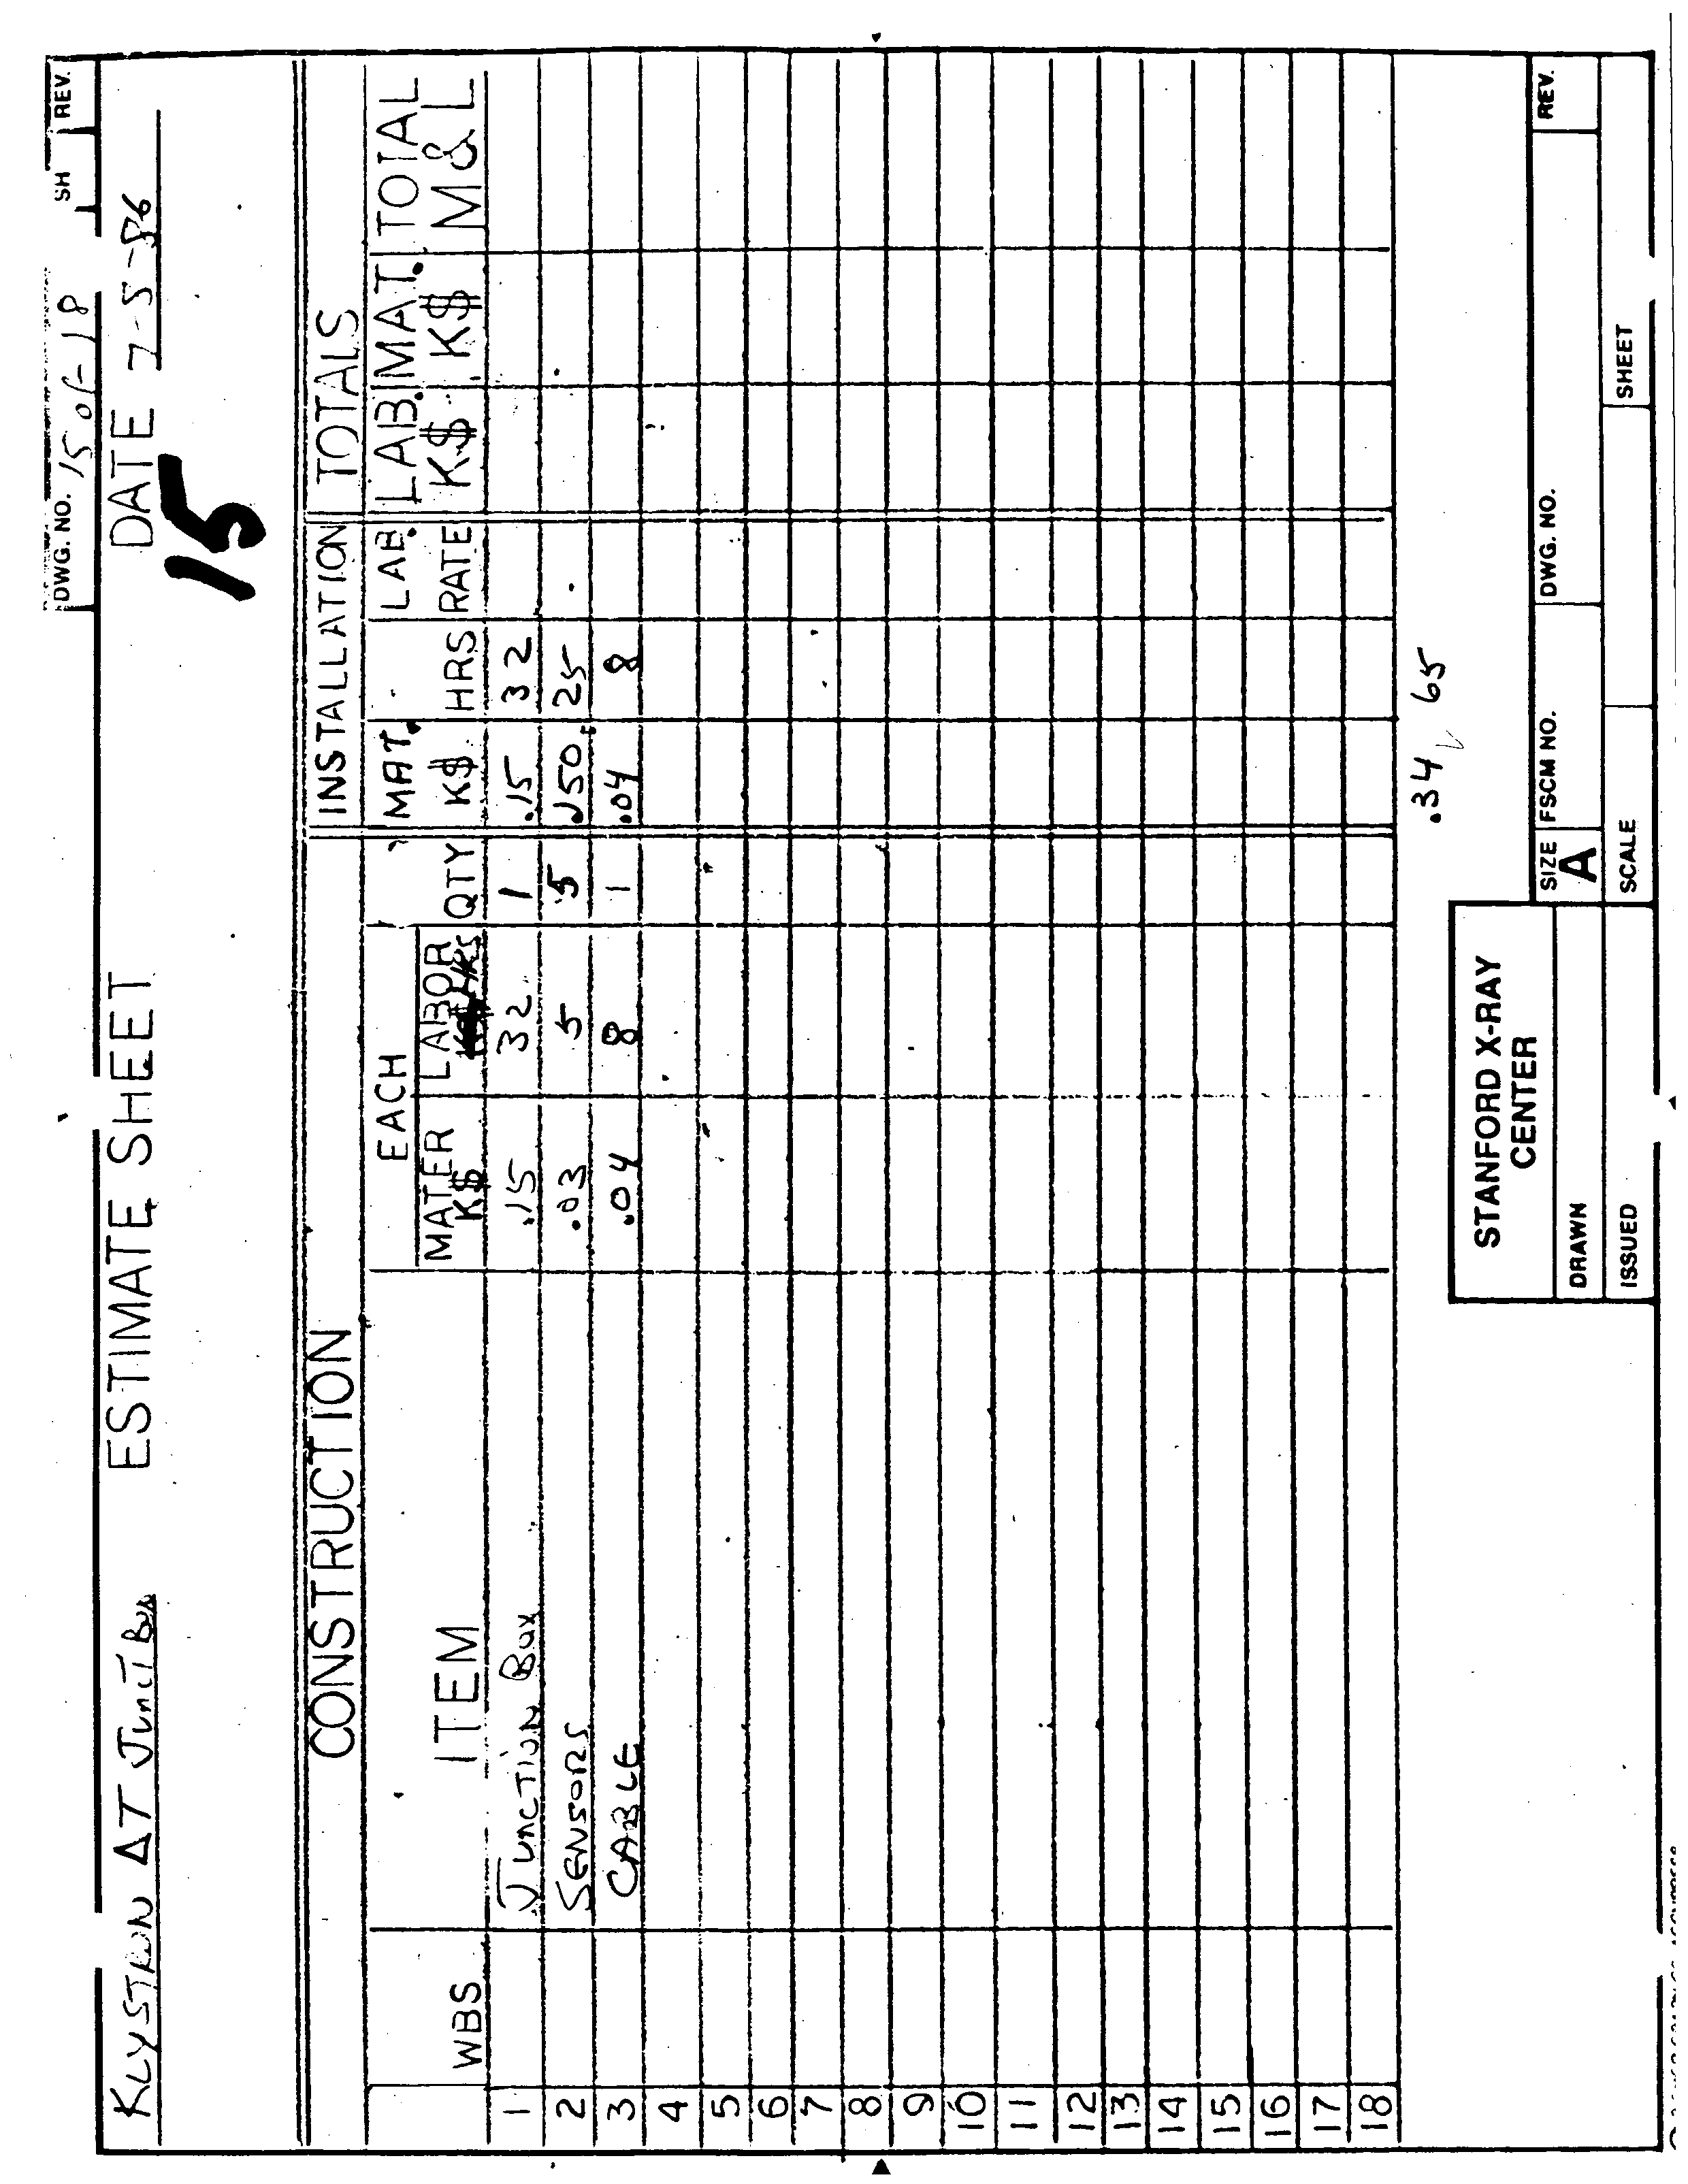 DWG. NO. 15 of 18 SH REV.
KLYSTRON ΔT JUNCT BOX ESTIMATE SHEET DATE 7-5-86
15
CONSTRUCTION INSTALLATION TOTALS
EACH MAT. LAB. LAB. MAT. TOTAL
WBS ITEM MATER K$ LABOR HRS QTY K$ HRS RATE K$ K$ M & L
1 JUNCTION BOX .15 32 1 .15 32
2 SENSORS .03 5 5 .150 25
3 CABLE .04 8 1 .04 8
4
5
6
7
8
9
10
11
12
13
14
15
16
17
18
.34 65
STANFORD X-RAY
CENTER
SIZE A FSCM NO. DWG. NO. REV.
DRAWN
ISSUED SCALE SHEET